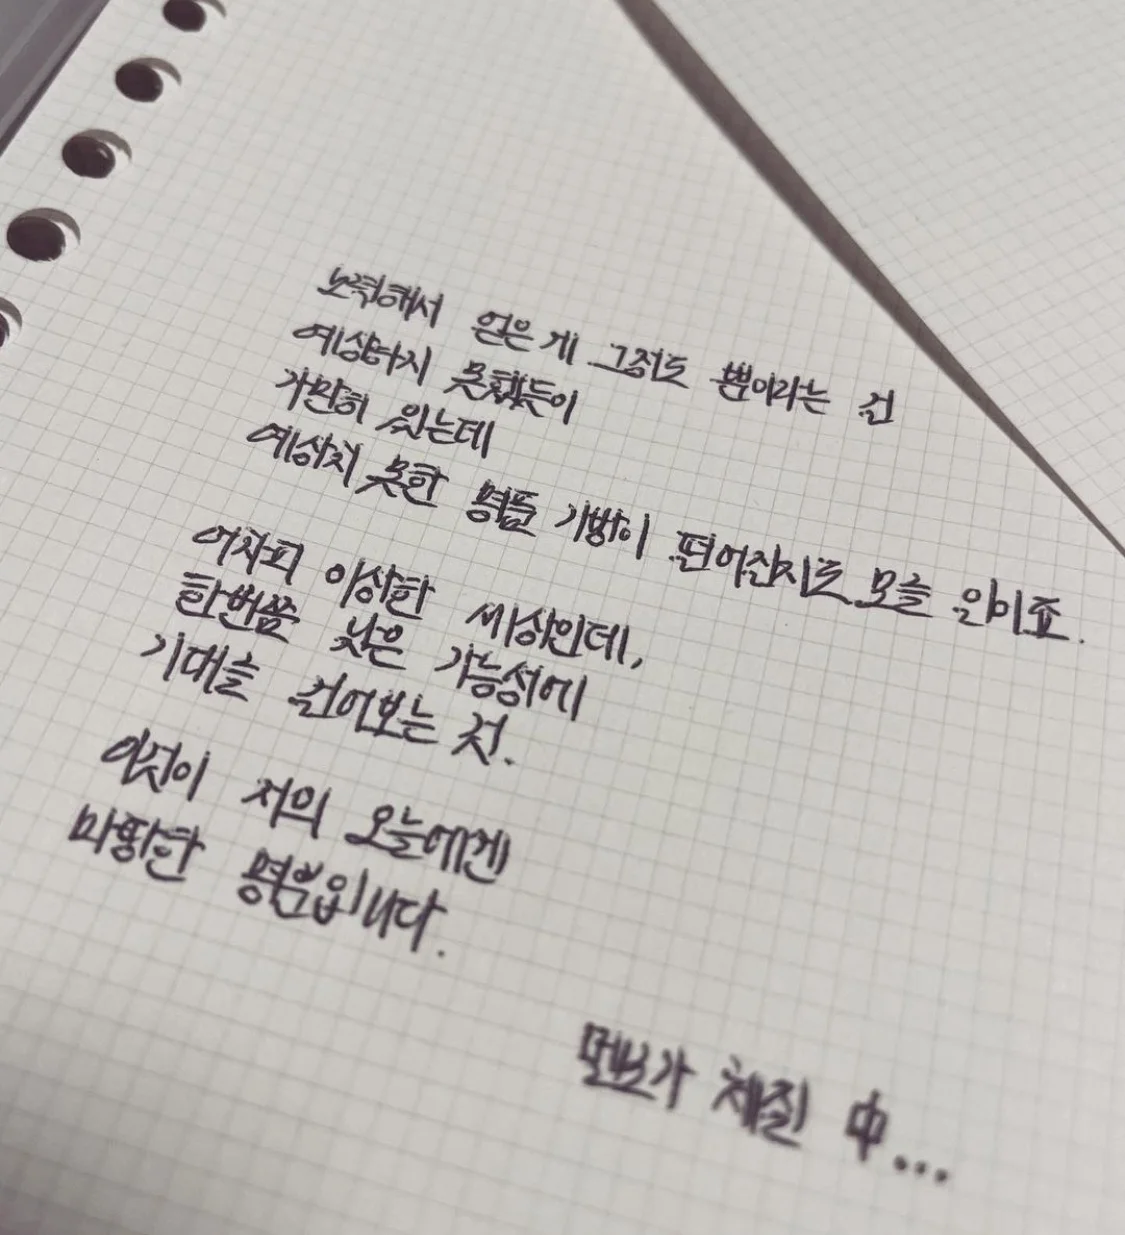 노력해서 얻은 게 그정도 뿐이라는 건
예상하지 못했듯이
가만히 있는데
예상치 못한 명품 가방이 떨어질지도 모를 일이죠.
어차피 이상한 세상인데,
한번쯤 낮은 가능성에
기대를 걸어보는 것.
이것이 저의 오늘에겐
마땅한 명분입니다.
멘보가 체질 中...